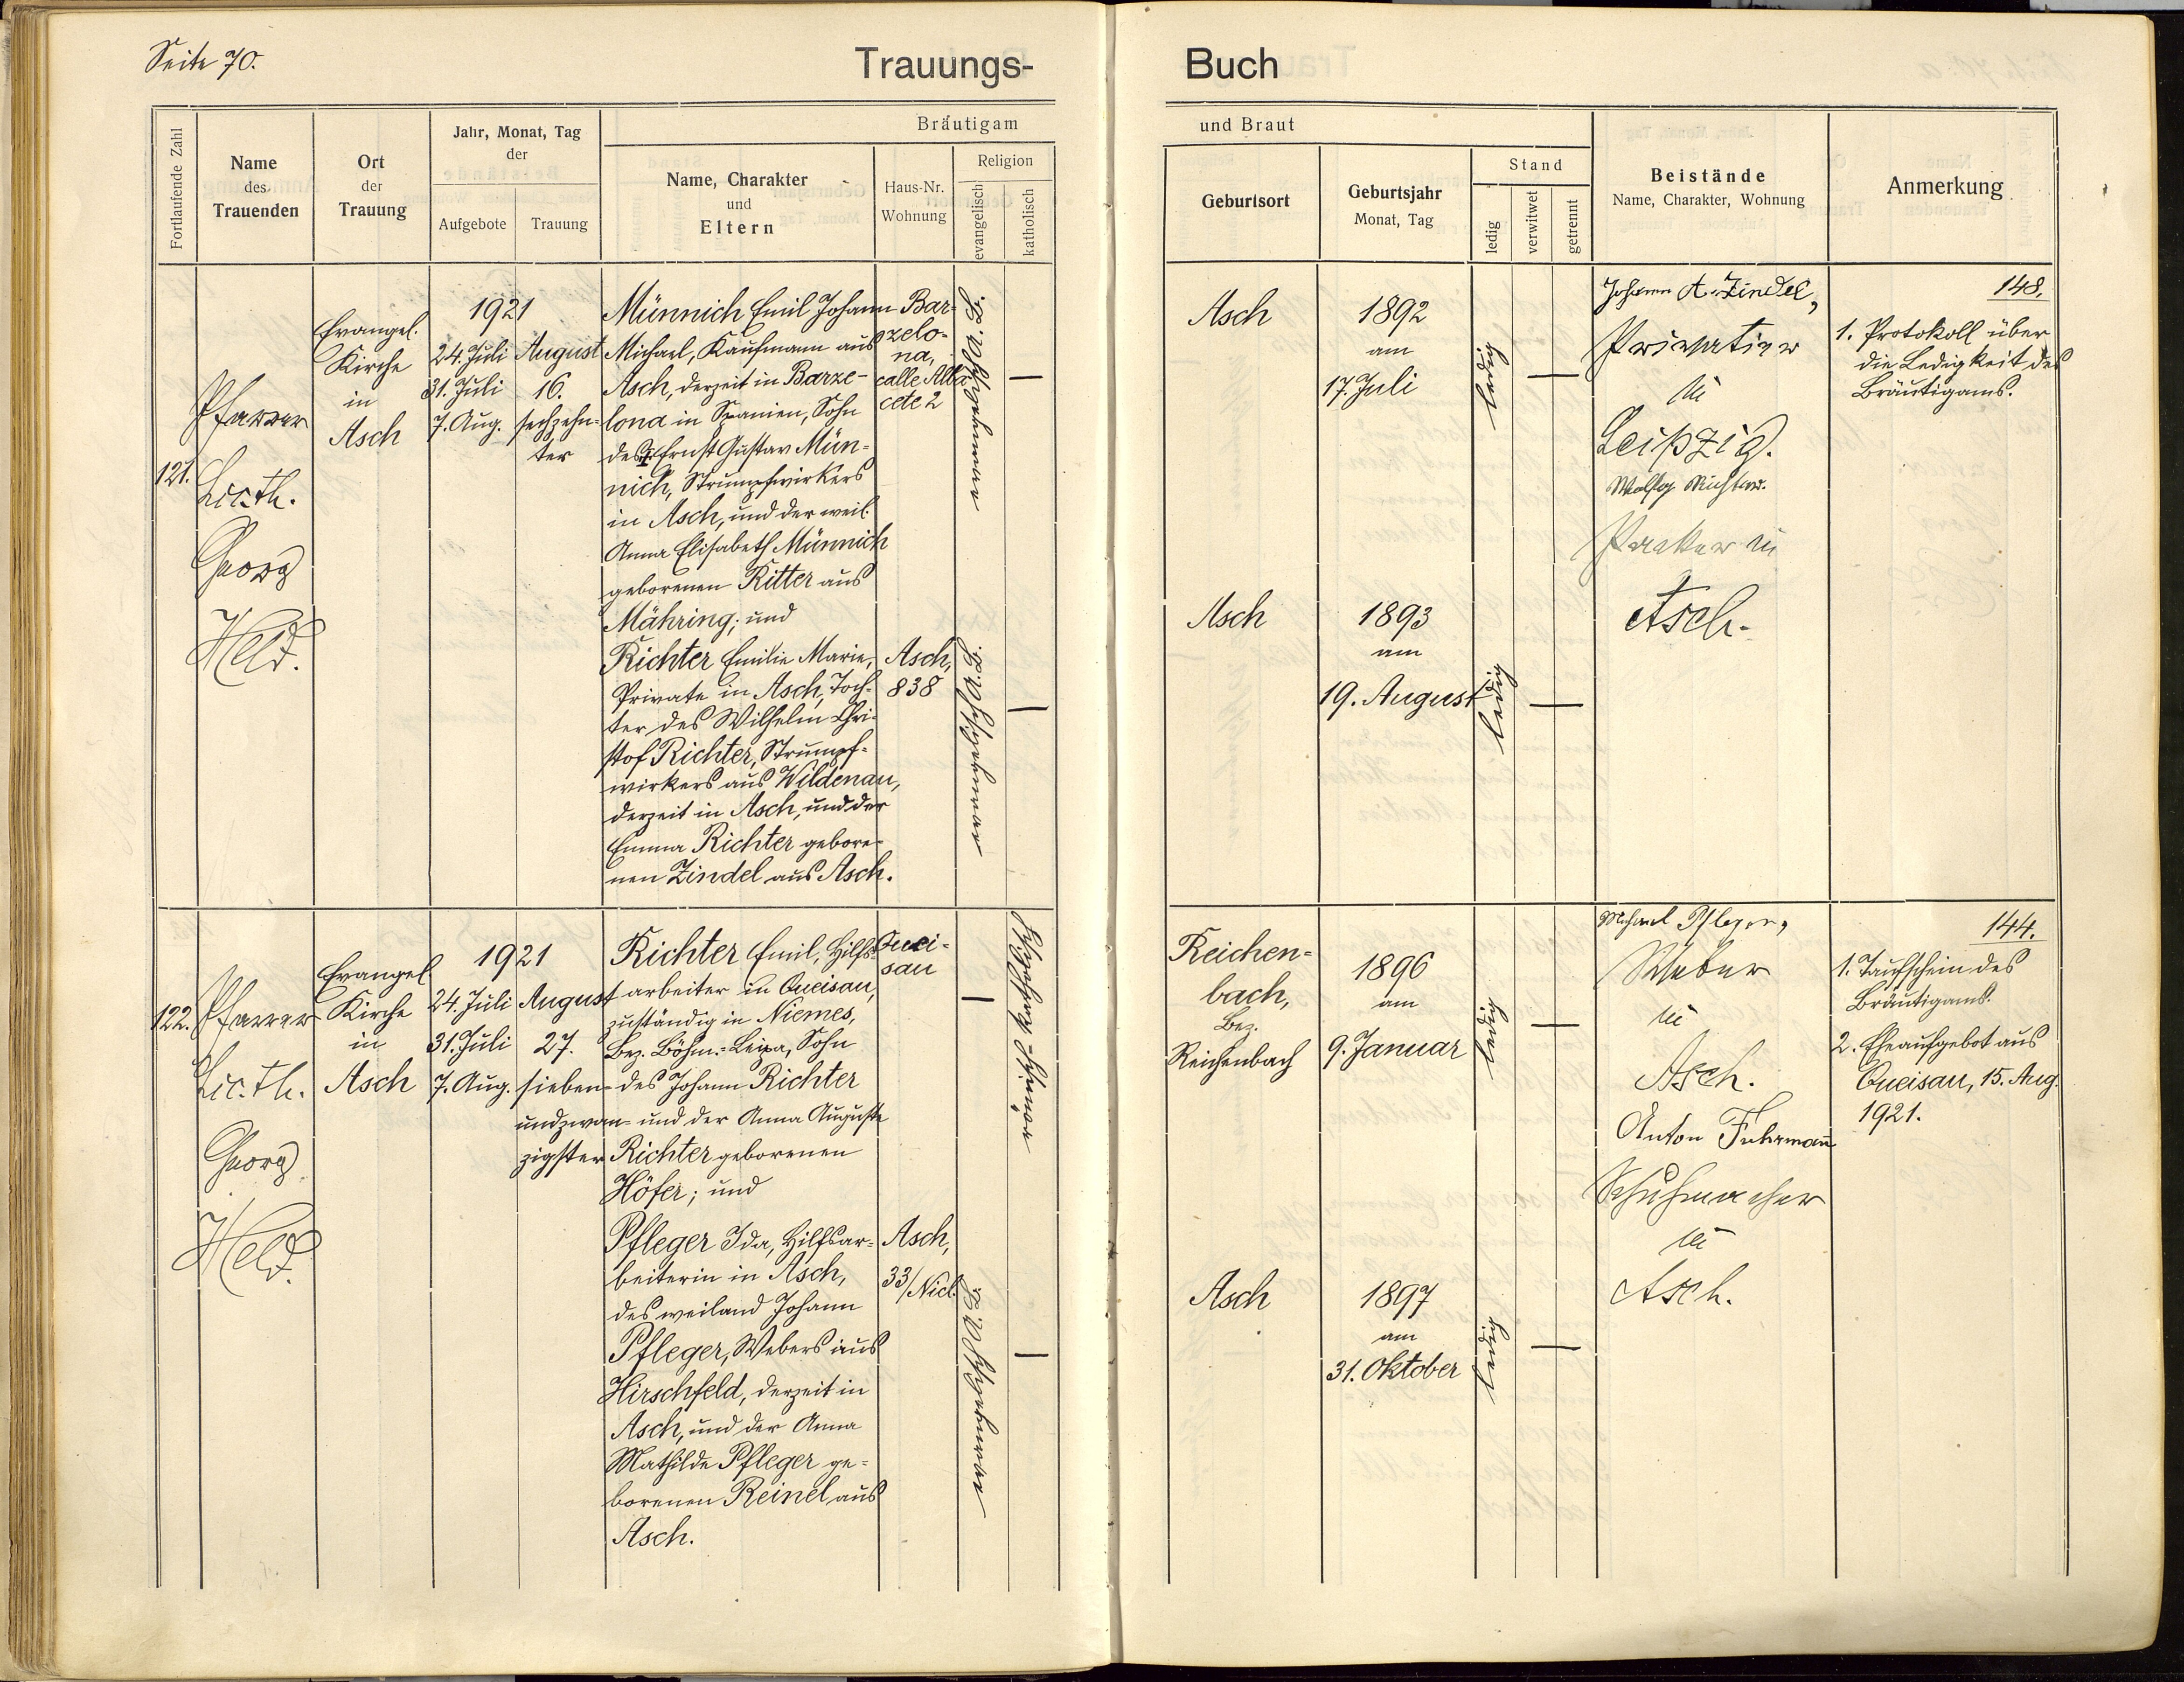 Seite 70.
Trauungs-
Buch
Fortlaufende Zahl
Name
des
Trauenden
Ort
der
Trauung
Jahr, Monat, Tag
der
Aufgebote
Trauung
Bräutigam
Name, Charakter
und
Eltern
Haus-Nr.
Wohnung
Religion
evangelisch
katholisch
und Braut
Geburtsort
Geburtsjahr
Monat, Tag
Stand
ledig
verwitwet
getrennt
Beistände
Name, Charakter, Wohnung
Anmerkung
121.
Pfarrer
Lic. th.
Georg
Held.
Evangel.
Kirche
in
Asch
1921
24. Juli
31. Juli
7. Aug.
August
16.
sechzehn-
ter
Münnich Emil Johann
Michael, Kaufmann aus
Asch, derzeit in Barze-
lona in Spanien, Sohn
des Ernst Gustav Mün-
nich, Strumpfwirkers
in Asch, und der weil.
Anna Elisabeth Münnich
geborenen Ritter aus
Mähring; und
Richter Emilie Marie,
Private in Asch, Toch-
ter des Wilhelm Chri-
stof Richter, Strumpf-
wirkers aus Wildenau,
derzeit in Asch, und der
Emma Richter gebore-
nen Zindel aus Asch.
Bar-
zelo-
na,
calle Alba
cete 2
Asch,
838
evangelisch A. B.
evangelisch A. B.
Asch
1892
am
17. Juli
ledig
Asch
1893
am
19. August
ledig
Johann A. Zindel,
Privatier
in
Leipzig.
Wolfg Richter.
in
Asch.
148.
1. Protokoll über
die Ledigkeit des
Bräutigams.
122.
Pfarrer
Lic. th.
Georg
Held.
Evangel.
Kirche
in
Asch
1921
24. Juli
31. Juli
7. Aug.
August
27.
sieben-
undzwan-
zigster
Richter Emil, Hilfs-
arbeiter in Queisau,
zuständig in Niemes,
Bez. Böhm.-Leipa, Sohn
des Johann Richter
und der Anna Auguste
Richter geborenen
Höfer; und
Pfleger Ida, Hilfsar-
beiterin in Asch,
des weiland Johann
Pfleger, Webers aus
Hirschfeld, derzeit in
Asch, und der Anna
Mathilde Pfleger ge-
borenen Reinel aus
Asch.
Quei-
sau
Asch,
33/Nicl.
römisch-katholisch
evangelisch A. B.
Reichen-
bach,
Bez.
Reichenbach
1896
am
9. Januar
ledig
Asch
1897
am
31. Oktober
ledig
Michael Pfleger,
Weber
in
Asch.
Anton Fuhrmann
Schuhmacher
in
Asch.
144.
1. Taufschein des
Bräutigams.
2. Eheaufgebot aus
Queisau, 15. Aug.
1921.